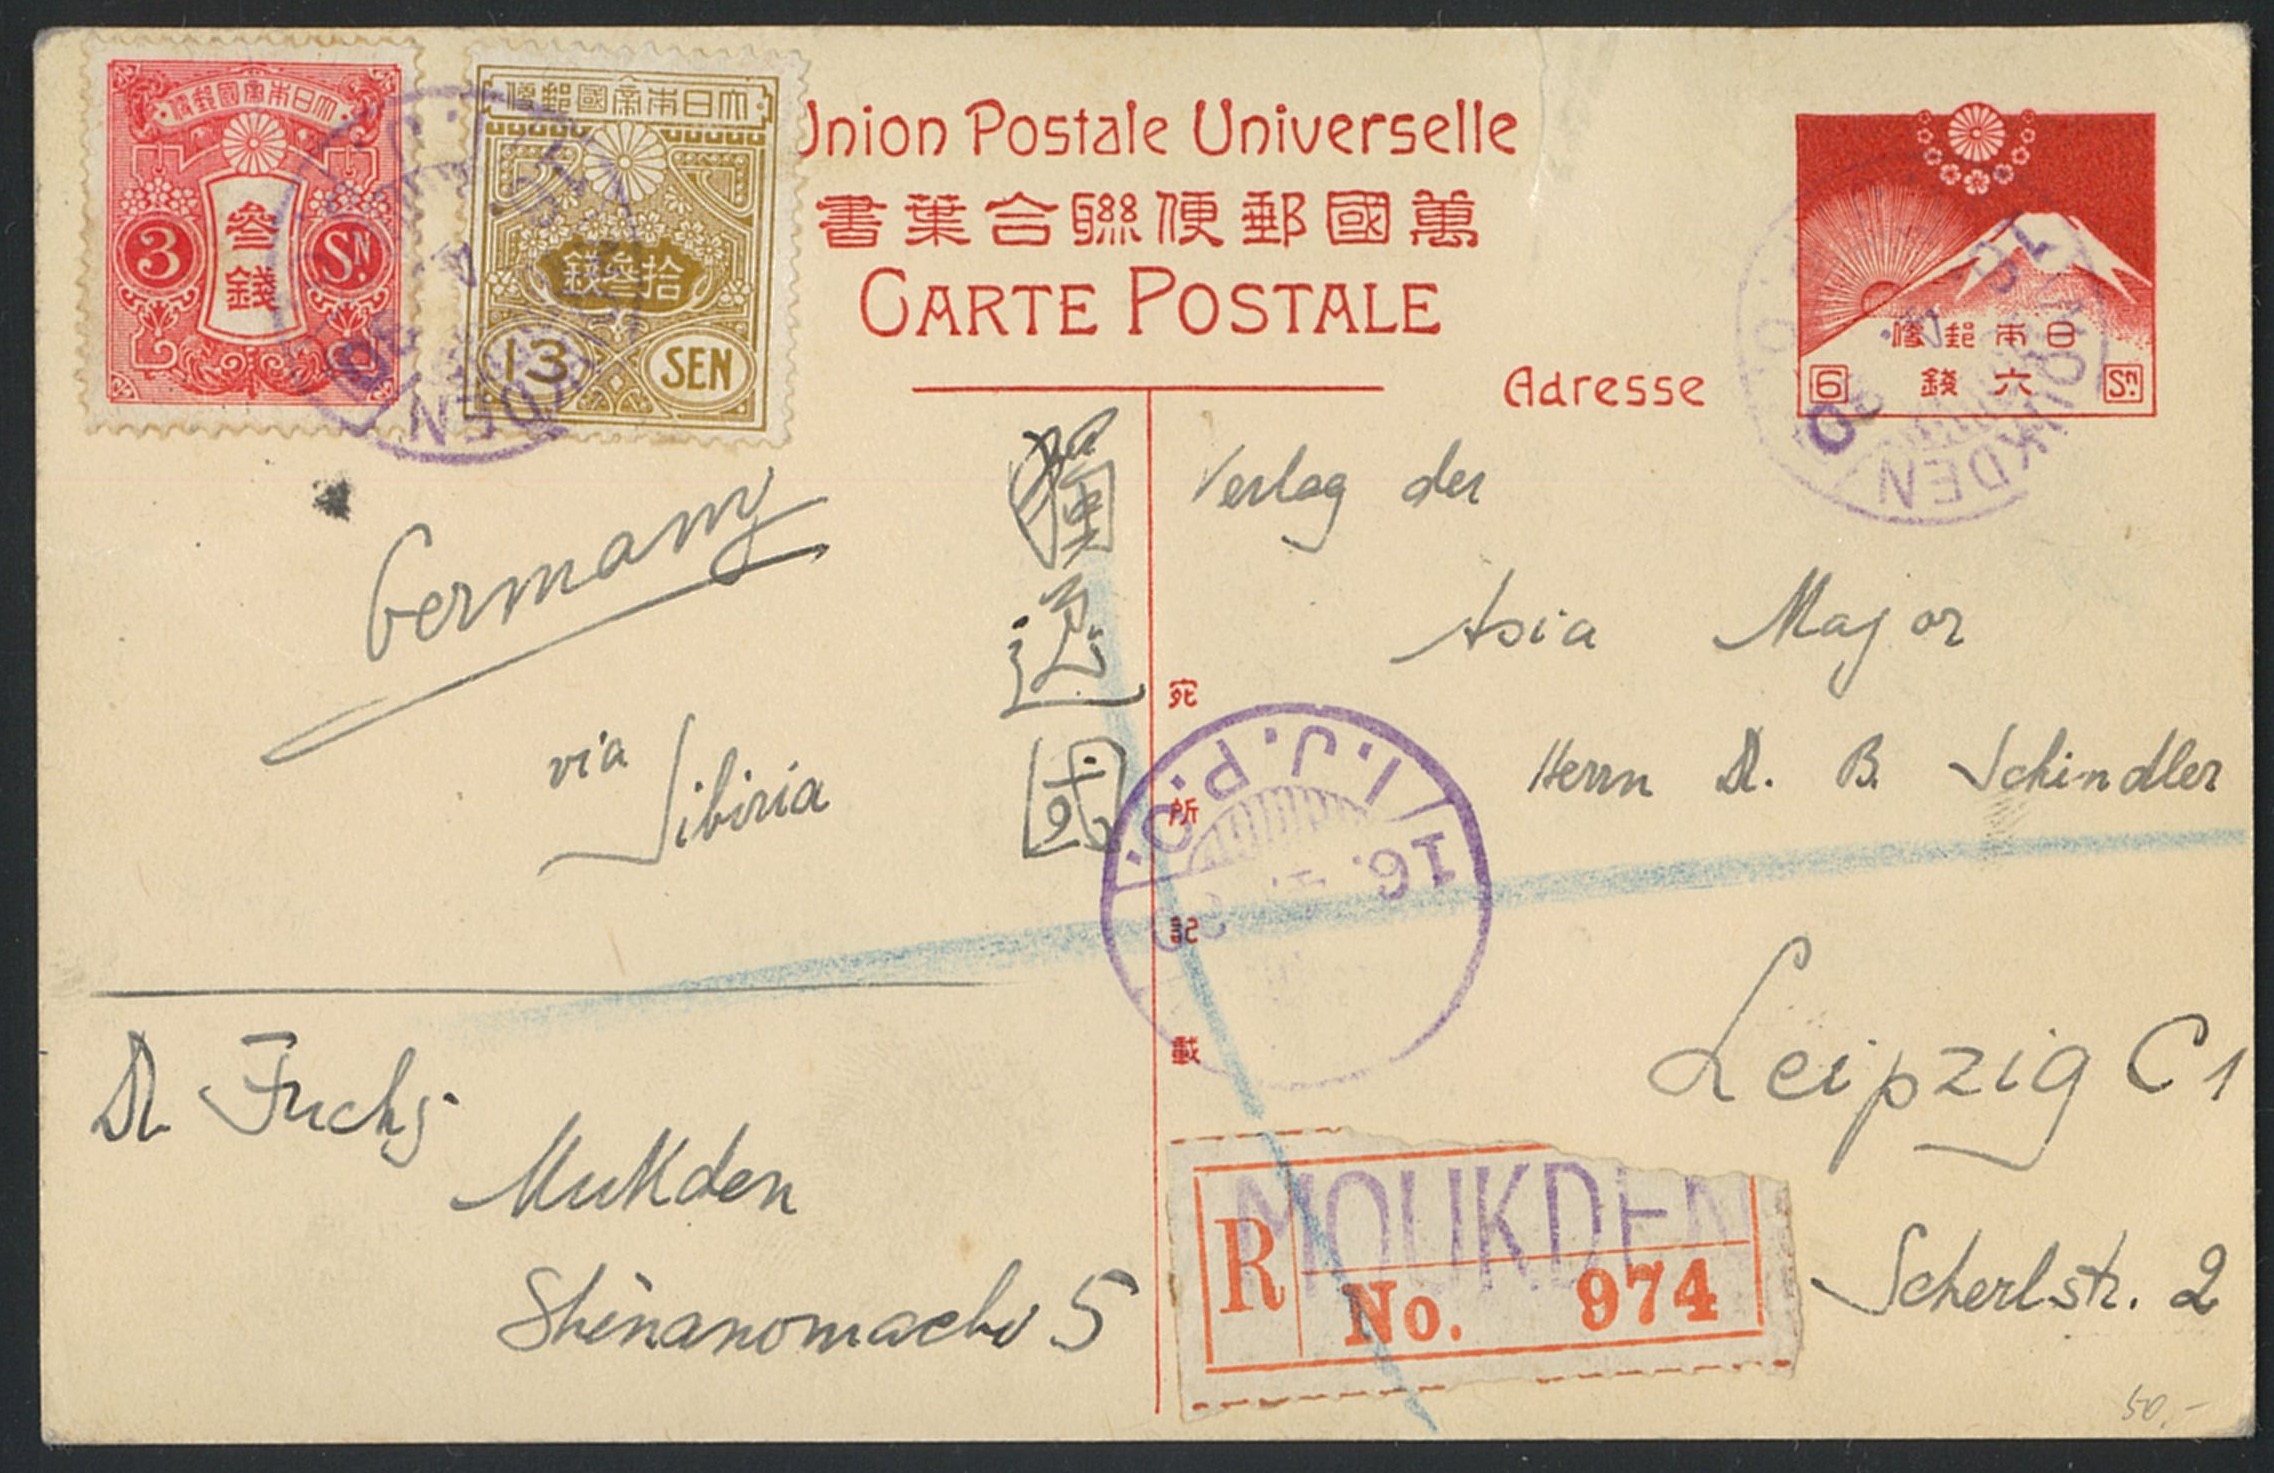 大日本帝國郵便
3 SN
參錢
大日本帝國郵便
拾參錢
13 SEN
Union Postale Universelle
萬國郵便聯合葉書
CARTE POSTALE
Adresse
日本郵便
六錢
6 Sn.
MOUKDEN
Germany
via
Sibiria
國
Verlag der
Asia Major
Herrn Dr. B. Schindler
Leipzig C1
Scherlstr. 2
宛所記載
I.J.P.O.
16.
Dr. Fuchs
Mukden
Shinanomachi 5
R MOUKDEN
No. 974
50,-